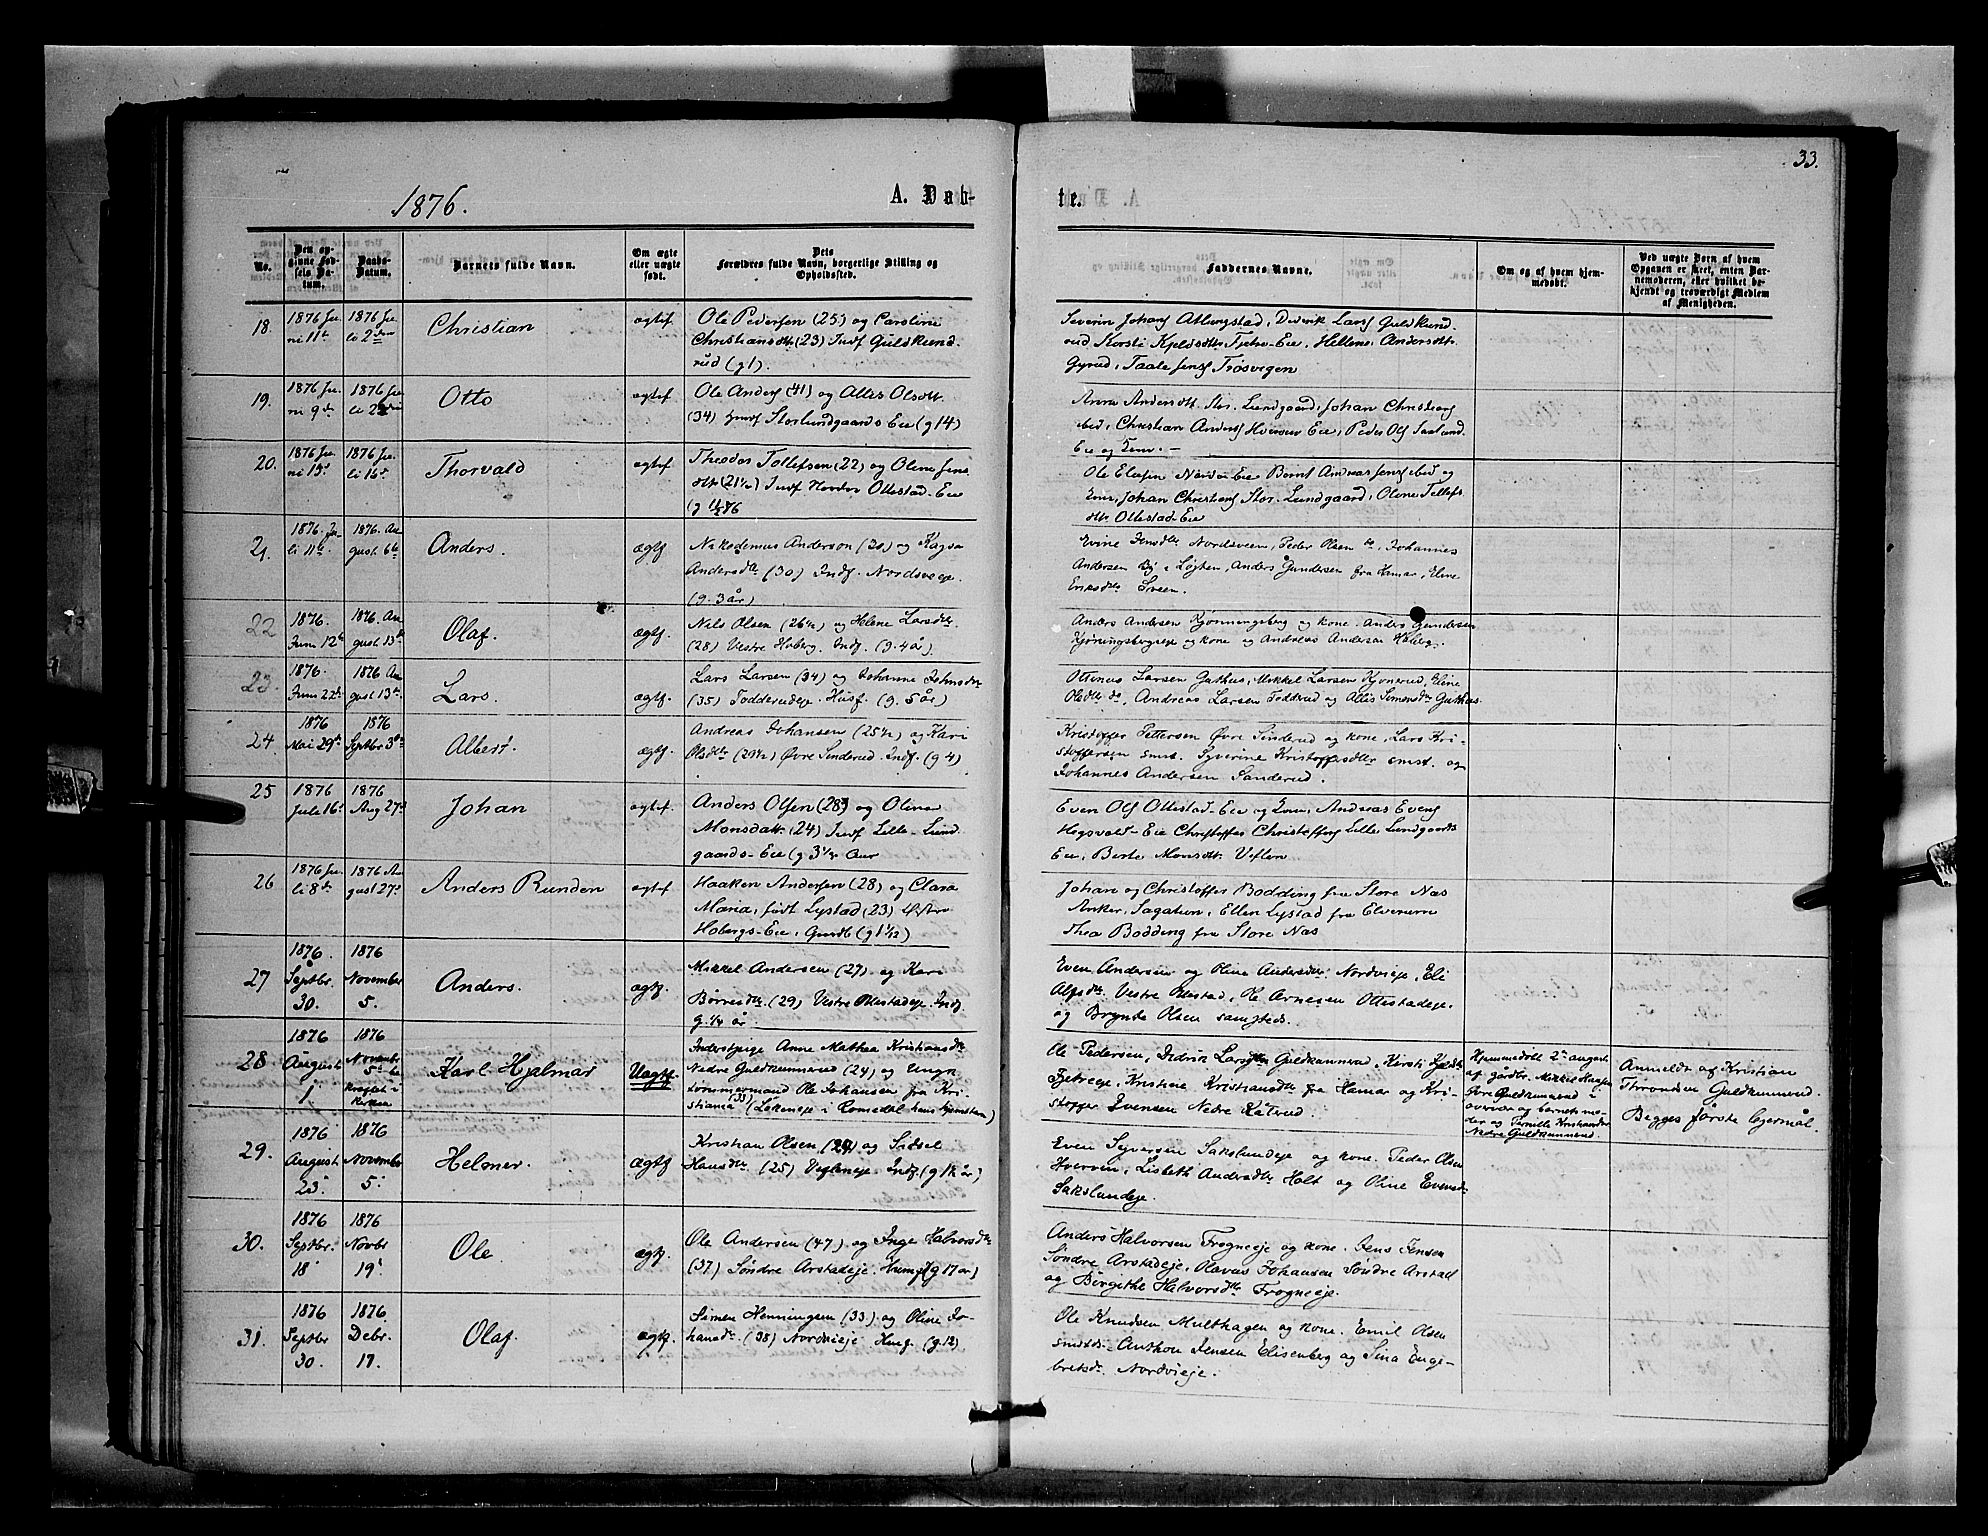 33.
1876.
A. Døb-
te.
No.
Den op-
givne Fød-
sels Da-
tum.
Daabs-
Datum.
Barnets fulde Navn.
Om ægte
eller uægte
født.
Dets
Forældres fulde Navn, borgerlige Stilling og
Opholdssted.
Faddernes Navne.
Om og af hvem hjem-
medøbt.
Ved uægte Børn af hvem
Opgaven er skeet, enten Bar-
nemoderen, eller hvilket be-
kjendt og troværdigt Medlem
af Menigheden.
18.
1876 Ju-
ni 11te
1876 Ju-
li 2den
Christian
ægtef.
Ole Pedersen (25) og Caroline
Christiansdtr (23) Indf Guldkund-
rud (g 1).
Severin Johans Atlungstad, Diderik Lars Guldkund-
rud Korsti Kjeldsdtr Tjetre-Eie, Hellene Andersdtr
Gyrud, Taale Jens Trøsvegen
19.
1876 Ju-
ni 9de
1876 Ju-
li 2den
Otto
ægtef.
Ole Anders (41) og Allis Olsdtr.
(34) Huusf Storlundgaards Eie (g 14)
Anna Andersdtr Stor-Lundgaard, Johan Christians
ibid, Christian Anders Hverven Eie, Peder Ols Saxlund-
Eie og Kone. —
20.
1876 Ju-
ni 15de
1876 Ju-
li 16de
Thorvald
ægtef
Theodor Tollefsen (22) og Oline Jens
dtr (21 1/2) Indf Nordre Ottestad-Eie
Ole Elefsen Nordre-Eie Bernt Andreas Jens ibid og
Kone, Johan Christians Stor-Lundgaard, Oline Tollefs
dtr Ottestad-Eie
21.
1876. Ju-
li 11te
1876. Au
gust 6te
Anders.
ægtf
Nikodemus Anderson (30) og Kajsa
Andersdtr (30) Indf. Nordsveeje.
(g. 3 år)
Evine Jensdtr Nordsveen, Peder Olsen do, Johannes
Andersen By i Løjten, Anders Gundersen fra Hamar, Eline
Eriksdtr Sveen.
22
1876.
Juni 12te
1876. Au
gust 13de
Olaf.
ægtf.
Nils Olsen (26 1/2) og Helene Larsdtr.
(28) Vestre Hoberg. Indf. (g. 4 år).
Anders Andersen Kjønningsberg og kone. Anders Gundersen
Kjønningsbergeje og kone og Andreas Andersen Hoberg.
23.
1876.
Juni 22de
1876 Au
gust 13de
Lars.
ægtf.
Lars Larsen (34) og Johanne Johnsdtr
(35) Todderudeje. Husf. (g. 5 år)
Ottinus Larsen Guthus, Mikkel Larsen Kjonerud, Eline
Olsdtr do, Andreas Larsen Todderud og Allis Simonsdtr Guthus.
24.
1876
Mai 29de
1876
Septbr 3die
Albert.
ægtf.
Andreas Johansen (25 1/2) og Kari
Olsdtr (29 1/2) Øvre Sinderud. Indf. (g 4)
Kristoffer Pettersen Øvre Sinderud og kone, Lars Kri-
stoffersen smst. Syverine Kristoffersdtr smst. og
Johannes Andersen Sanderud.
25
1876
Juli 16de
1876
Aug 27de
Johan
ægtef.
Anders Olsen (28) og Oline
Monsdatt. (24) Indf Lille-Lund
gaards-Eie (g. 3 1/2 Aar
Even Ols Ottestad-Eie og Kone, Andreas Evens
Hegsvold-Eie Christoffer Christoffers Lille Lundgaards
Eie, Berte Monsdtr Viflen
26
1876 Ju-
li 8de
1876 Au
gust 27de
Anders Runden
ægtef
Haaken Andersen (28) og Clara
Maria, født Lystad (23) Østre
Hobergs-Eie, Gaardb (g 1 1/12)
Johan og Christoffer Bodding fra Store Næs
Anker, Sagatun, Ellen Lystad fra Elverum
Thea Bodding fra Store Næs
27
1876.
Septbr.
30.
1876
November
5.
Anders.
ægtf.
Mikkel Andersen (27) og Kari
Børresdtr (29) Vestre Ottestadeje. Indf
g. 1/4 år.
Even Andersen og Oline Andersdtr. Nordvieje, Eli
Alfsdtr. Vestre Ottestad, Ole Arnesen Ottestadeje.
og Brynte Olsen samsteds.
28
1876
August
1876
Novembr
5te
kristnet i
kirken
Karl Hjalmar
Uægtf.
Inderstpige Anne Mathea Kristiansdtr
Nedre Guldkunnerud (24) og Ungk
tømmermand Ole Johansen fra Kri-
stiania (33) (Løkeneje i Romsdal hans hjemstavn)
Ole Pedersen, Didrik Larsen Guldkunnerud, Kirsti Kjeldsdtr
Fjetreeje, Kristine Kristiansdtr fra Hamar og Kri-
stoffer Ivensen Nedre Råterud.
Hjemmedøbt 2de august
af gårdbr. Mikkel
Øvre Guldkunnerud i
overvær og barnets mo-
der og Pernille Kristiansdtr
Nedre Guldkunnerud.
Anmeldt af Kristian
Throndsen Guldkunnerud.
Begges første lejermål.
29.
1876
August
23.
1876
November
5.
Helmer.
Ægtf
Kristian Olsen (24) og Sidsel
Hansdtr. (25) Vifleneje. Indf (g 1 1/2 år)
Even Syversen Sakslundeje og kone. Peder Olsen
Hverven, Lisbeth Andersdtr Holt og Oline Evensdtr
Sakslundeje.
30.
1876
Septbr.
18
1876
Novbr
19.
Ole
ægtf.
Ole Andersen (47) og Inge Halvorsdtr
(37) Søndre Arstadeje. Husmf (g 17 år)
Anders Halvorsen Frogneeje og kone. Jens Jensen
Søndre Arstadeje, Olavus Johansen Søndre Arstad
og Børgithe Halvorsdtr Frogneeje.
31.
1876
Septbr
30.
1876.
Debr.
17.
Olaf.
ægtf.
Simen Henningsen (33) og Oline Jo-
hansdtr. (38) Nordvieje. Husf. (g. 12)
Ole Knudsen Multhagen og kone. Emil Olsen
smsteds. Anthon Jensen Elisenberg og Sina Enge-
bretsdtr. Nordvieje.